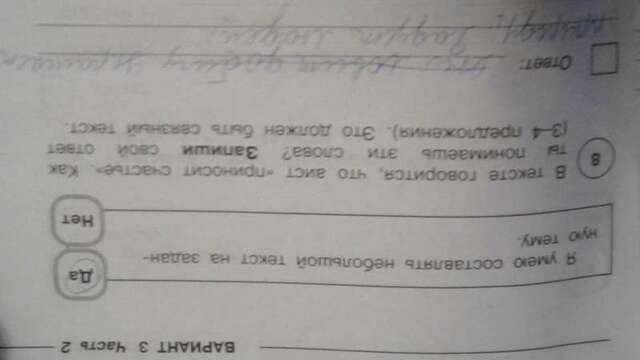 ВАРИАНТ 3 Часть 2
Я умею составлять небольшой текст на задан-
ную тему.
Да
Нет
8
В тексте говорится, что аист «приносит счастье». Как
ты понимаешь эти слова? Запиши свой ответ
(3–4 предложения). Это должен быть связный текст.
Ответ:
природу, радует людей.